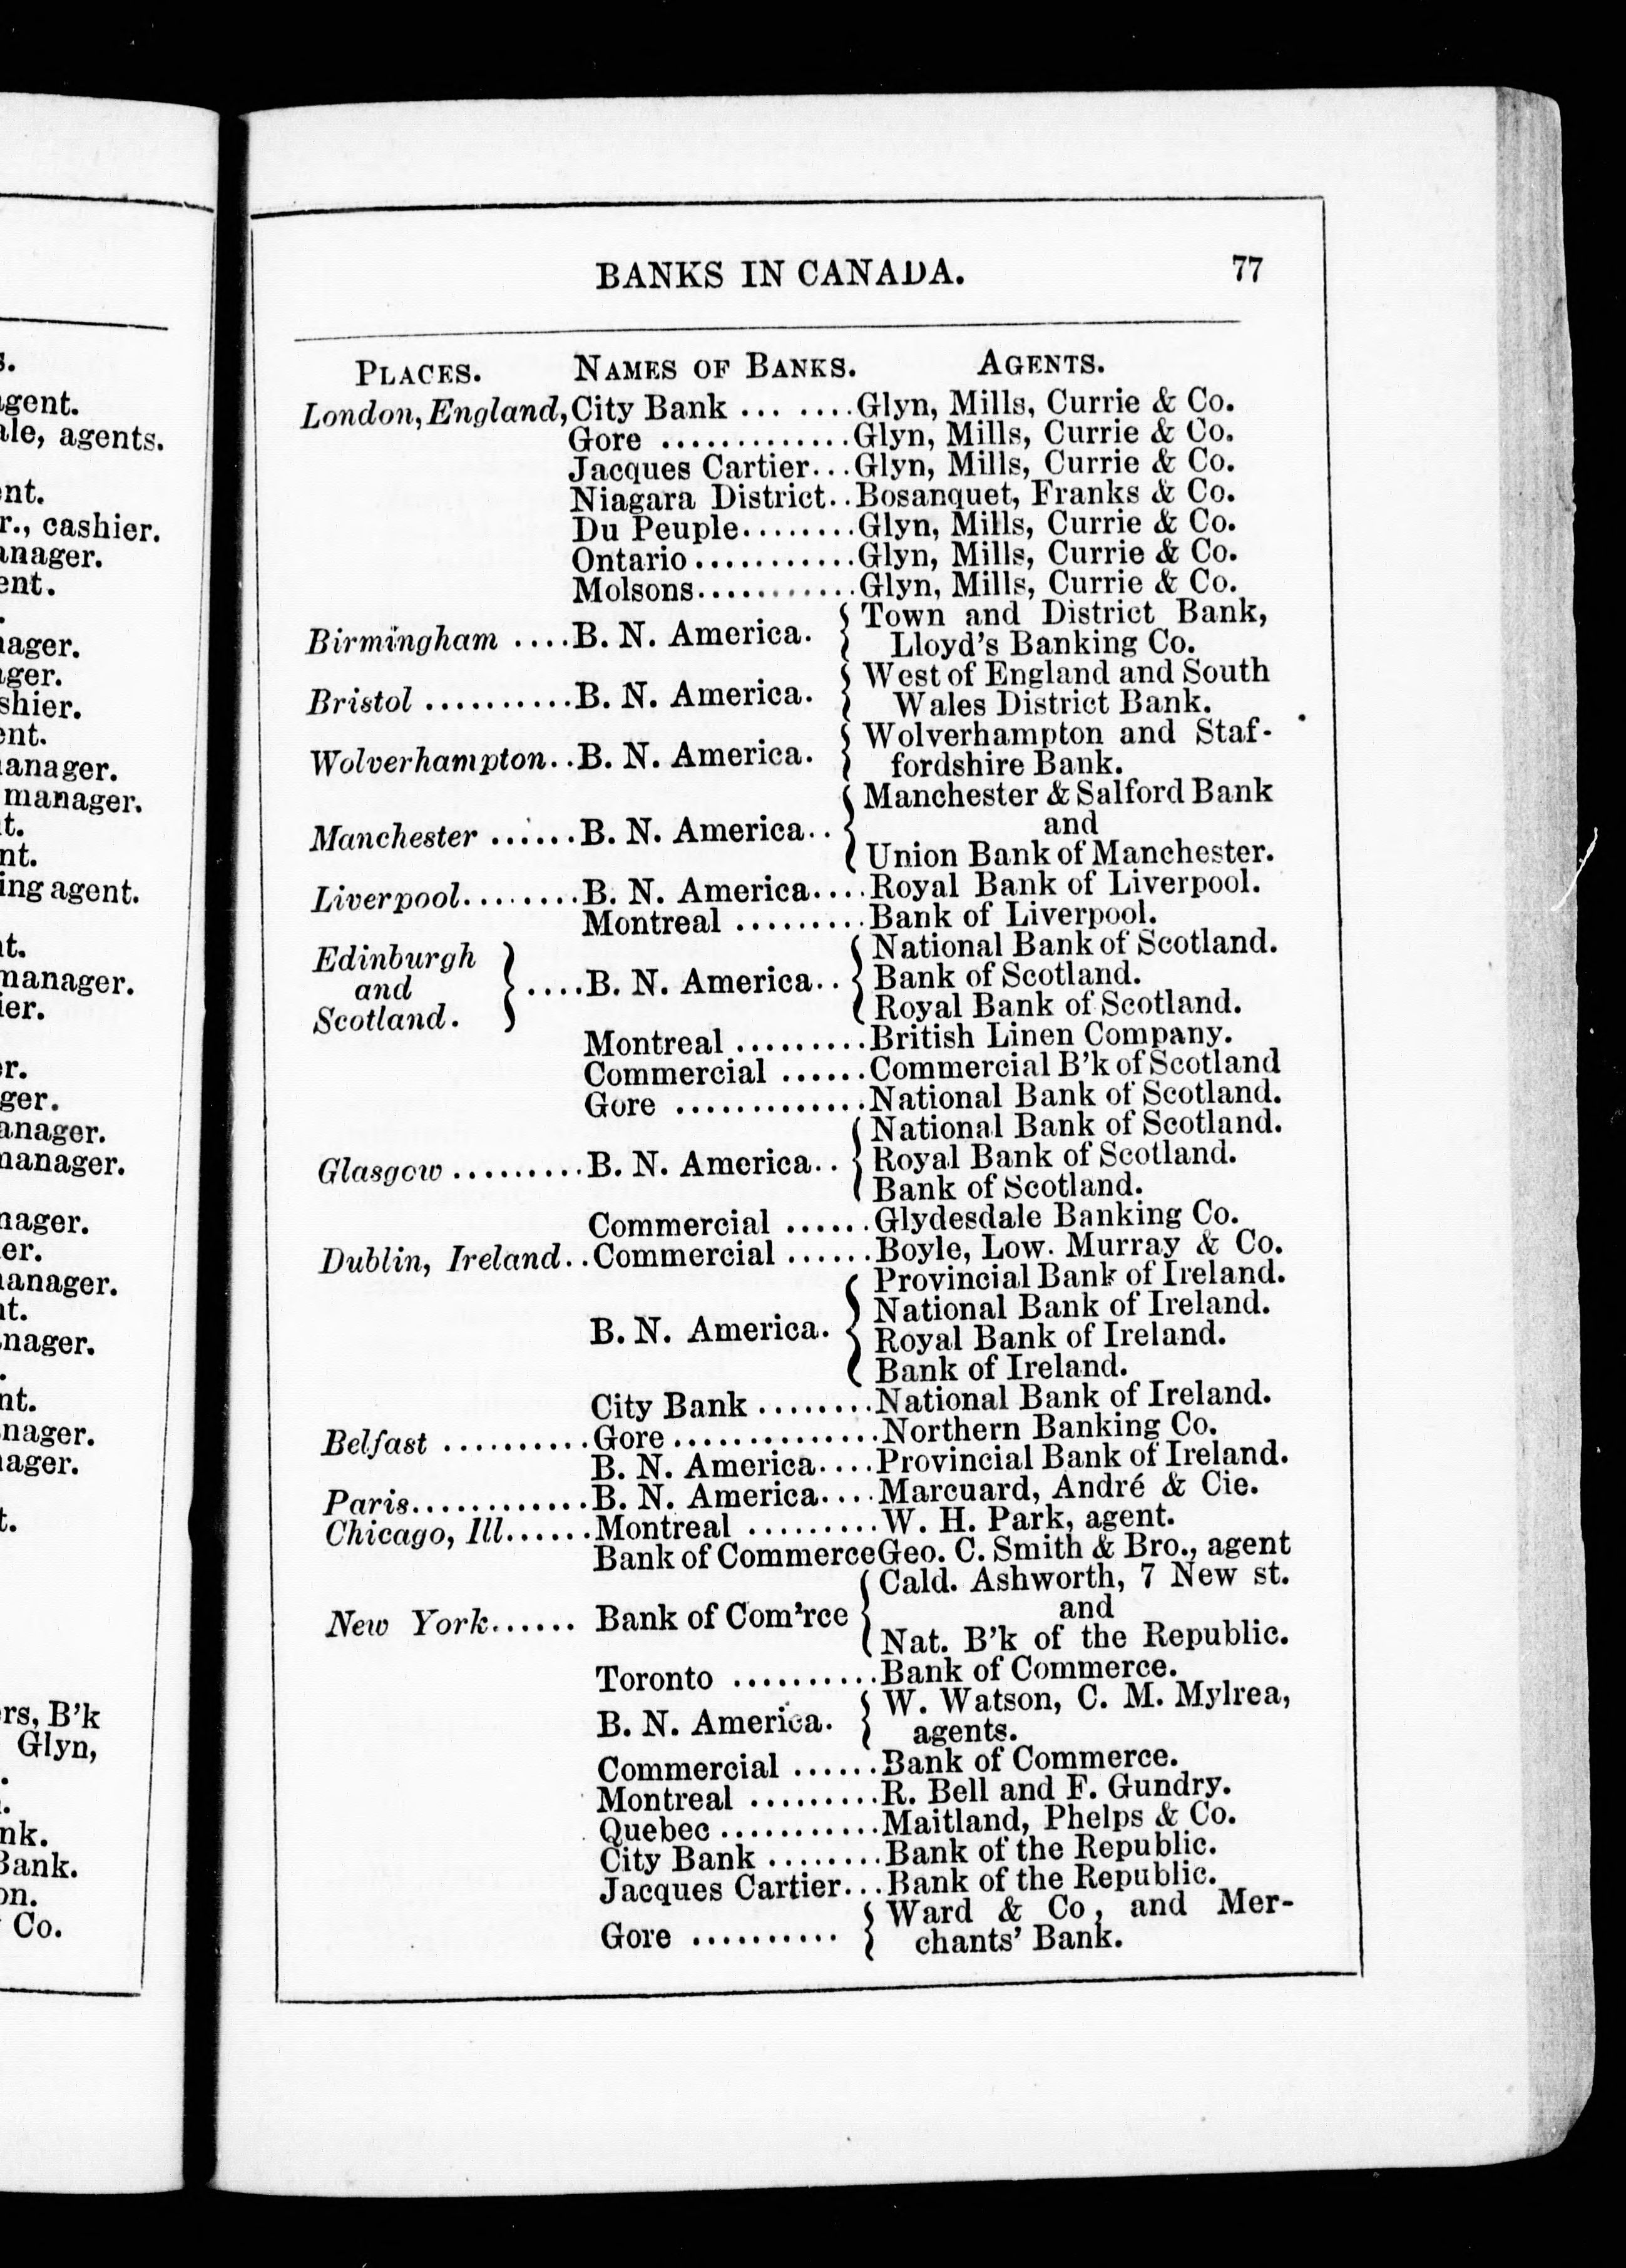 s.
agent.
ale, agents.
ent.
r., cashier.
anager.
ent.
nager.
ager.
shier.
ent.
manager.
manager.
t.
nt.
ing agent.
nt.
manager.
ier.
er.
ger.
anager.
manager.
nager.
er.
manager.
nt.
nager.
nt.
nager.
ager.
t.
ers, B'k
Glyn,
nk.
Bank.
on.
Co.
BANKS IN CANADA. 77
PLACES. NAMES OF BANKS. AGENTS.
London, England, City Bank ... .... Glyn, Mills, Currie & Co.
Gore ............. Glyn, Mills, Currie & Co.
Jacques Cartier... Glyn, Mills, Currie & Co.
Niagara District.. Bosanquet, Franks & Co.
Du Peuple........ Glyn, Mills, Currie & Co.
Ontario ........... Glyn, Mills, Currie & Co.
Molsons........... Glyn, Mills, Currie & Co.
Town and District Bank,
Birmingham .... B. N. America. { Lloyd's Banking Co.
West of England and South
Bristol .......... B. N. America. { Wales District Bank.
Wolverhampton and Staf-
Wolverhampton.. B. N. America. { fordshire Bank.
Manchester & Salford Bank
Manchester ...... B. N. America.. { and
Union Bank of Manchester.
Liverpool........ B. N. America.... Royal Bank of Liverpool.
Montreal ......... Bank of Liverpool.
Edinburgh National Bank of Scotland.
and } .... B. N. America.. { Bank of Scotland.
Scotland. Royal Bank of Scotland.
Montreal ......... British Linen Company.
Commercial ...... Commercial B'k of Scotland
Gore ............. National Bank of Scotland.
National Bank of Scotland.
Glasgow ......... B. N. America.. { Royal Bank of Scotland.
Bank of Scotland.
Commercial ...... Glydesdale Banking Co.
Dublin, Ireland.. Commercial ...... Boyle, Low. Murray & Co.
Provincial Bank of Ireland.
National Bank of Ireland.
B. N. America. { Royal Bank of Ireland.
Bank of Ireland.
City Bank ........ National Bank of Ireland.
Belfast .......... Gore ............... Northern Banking Co.
B. N. America.... Provincial Bank of Ireland.
Paris............ B. N. America.... Marcuard, André & Cie.
Chicago, Ill...... Montreal ......... W. H. Park, agent.
Bank of Commerce Geo. C. Smith & Bro., agent
Cald. Ashworth, 7 New st.
New York...... Bank of Com'rce { and
Nat. B'k of the Republic.
Toronto .......... Bank of Commerce.
W. Watson, C. M. Mylrea,
B. N. America. { agents.
Commercial ...... Bank of Commerce.
Montreal ......... R. Bell and F. Gundry.
Quebec ........... Maitland, Phelps & Co.
City Bank ........ Bank of the Republic.
Jacques Cartier... Bank of the Republic.
Ward & Co, and Mer-
Gore .......... { chants' Bank.